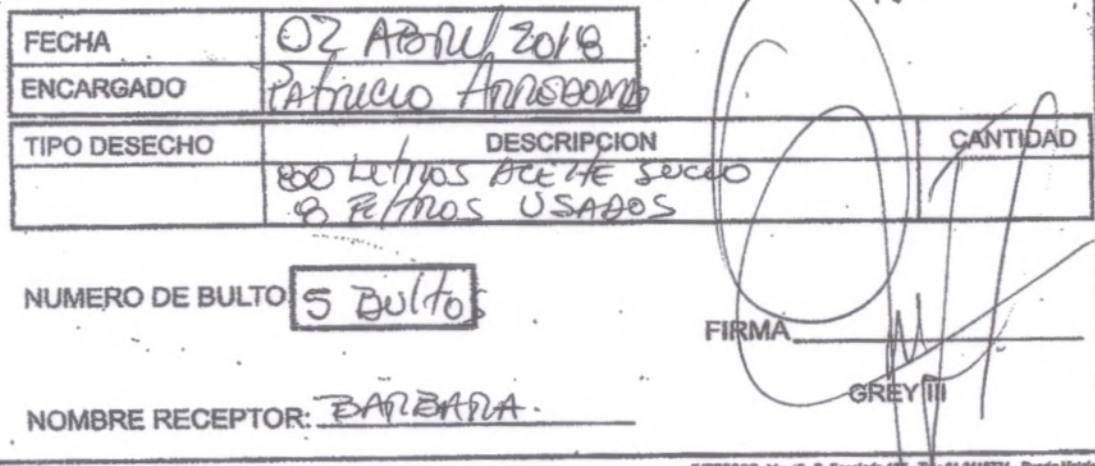 FECHA 02 ABRIL/2018
ENCARGADO PATRICIO ARREDONDO
TIPO DESECHO DESCRIPCION CANTIDAD
800 LITROS ACEITE SUCIO
8 FILTROS USADOS
NUMERO DE BULTO 5 BULTOS
FIRMA
GREY III
NOMBRE RECEPTOR: BARBARA.